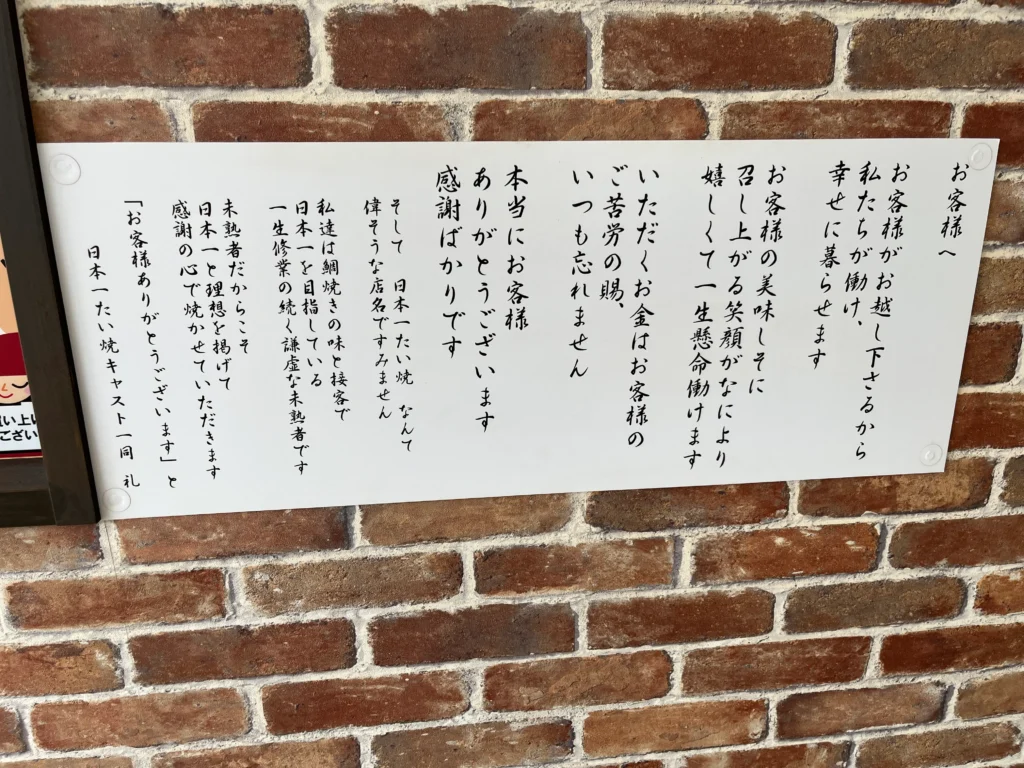 お客様へ
お客様がお越し下さるから
私たちが働け、
幸せに暮らせます
お客様の美味しそに
召し上がる笑顔がなにより
嬉しくて一生懸命働けます
いただくお金はお客様の
ご苦労の賜、
いつも忘れません
本当にお客様
ありがとうございます
感謝ばかりです
そして 日本一たい焼 なんて
偉そうな店名ですみません
私達は鯛焼きの味と接客で
日本一を目指している
一生修業の続く謙虚な未熟者です
未熟者だからこそ
日本一と理想を掲げて
感謝の心で焼かせていただきます
「お客様ありがとうございます」と
日本一たい焼キャスト一同 礼
い上
ござい